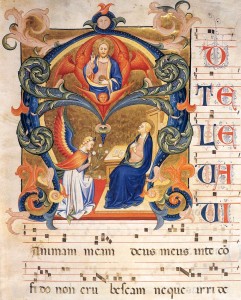 D
TE
LE
VA
VI
animam meam deus meus in te cō
fi do non eru bescam neque irri de